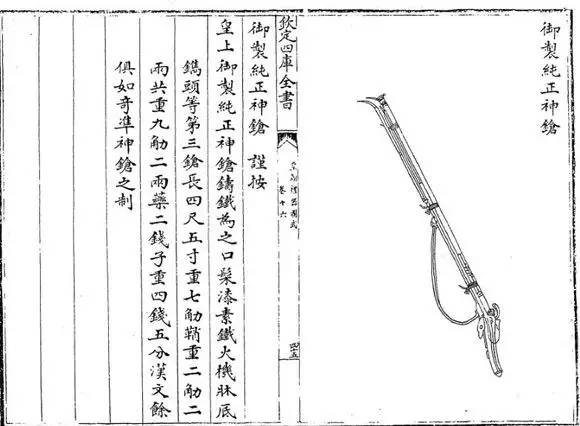 御製純正神鎗
欽定四庫全書
皇朝禮器圖式
卷十六
御製純正神鎗 謹按
皇上御製純正神鎗鑄鐵為之口髹漆素鐵火機牀底
鐫頭等第三鎗長四尺五寸重七觔鞘重二觔二
兩共重九觔二兩藥二錢子重四錢五分漢文餘
俱如奇準神鎗之制